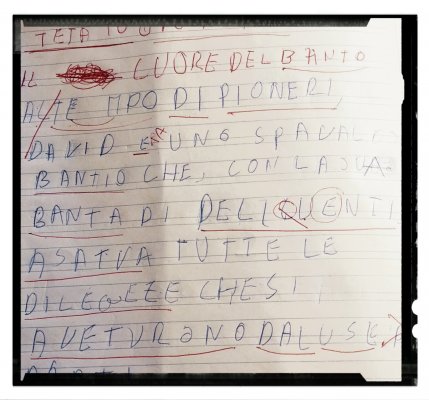 IL CUORE DEL BANTO
AL TE MPO DI PIONERI
DAVID ERA UNO
BANTIO CHE, CON LA SUA
BANTA DI DELIQUENTI
ASATVA TUTTE LE
DILEGEZE CHE SI
AVETURANO DALUSE